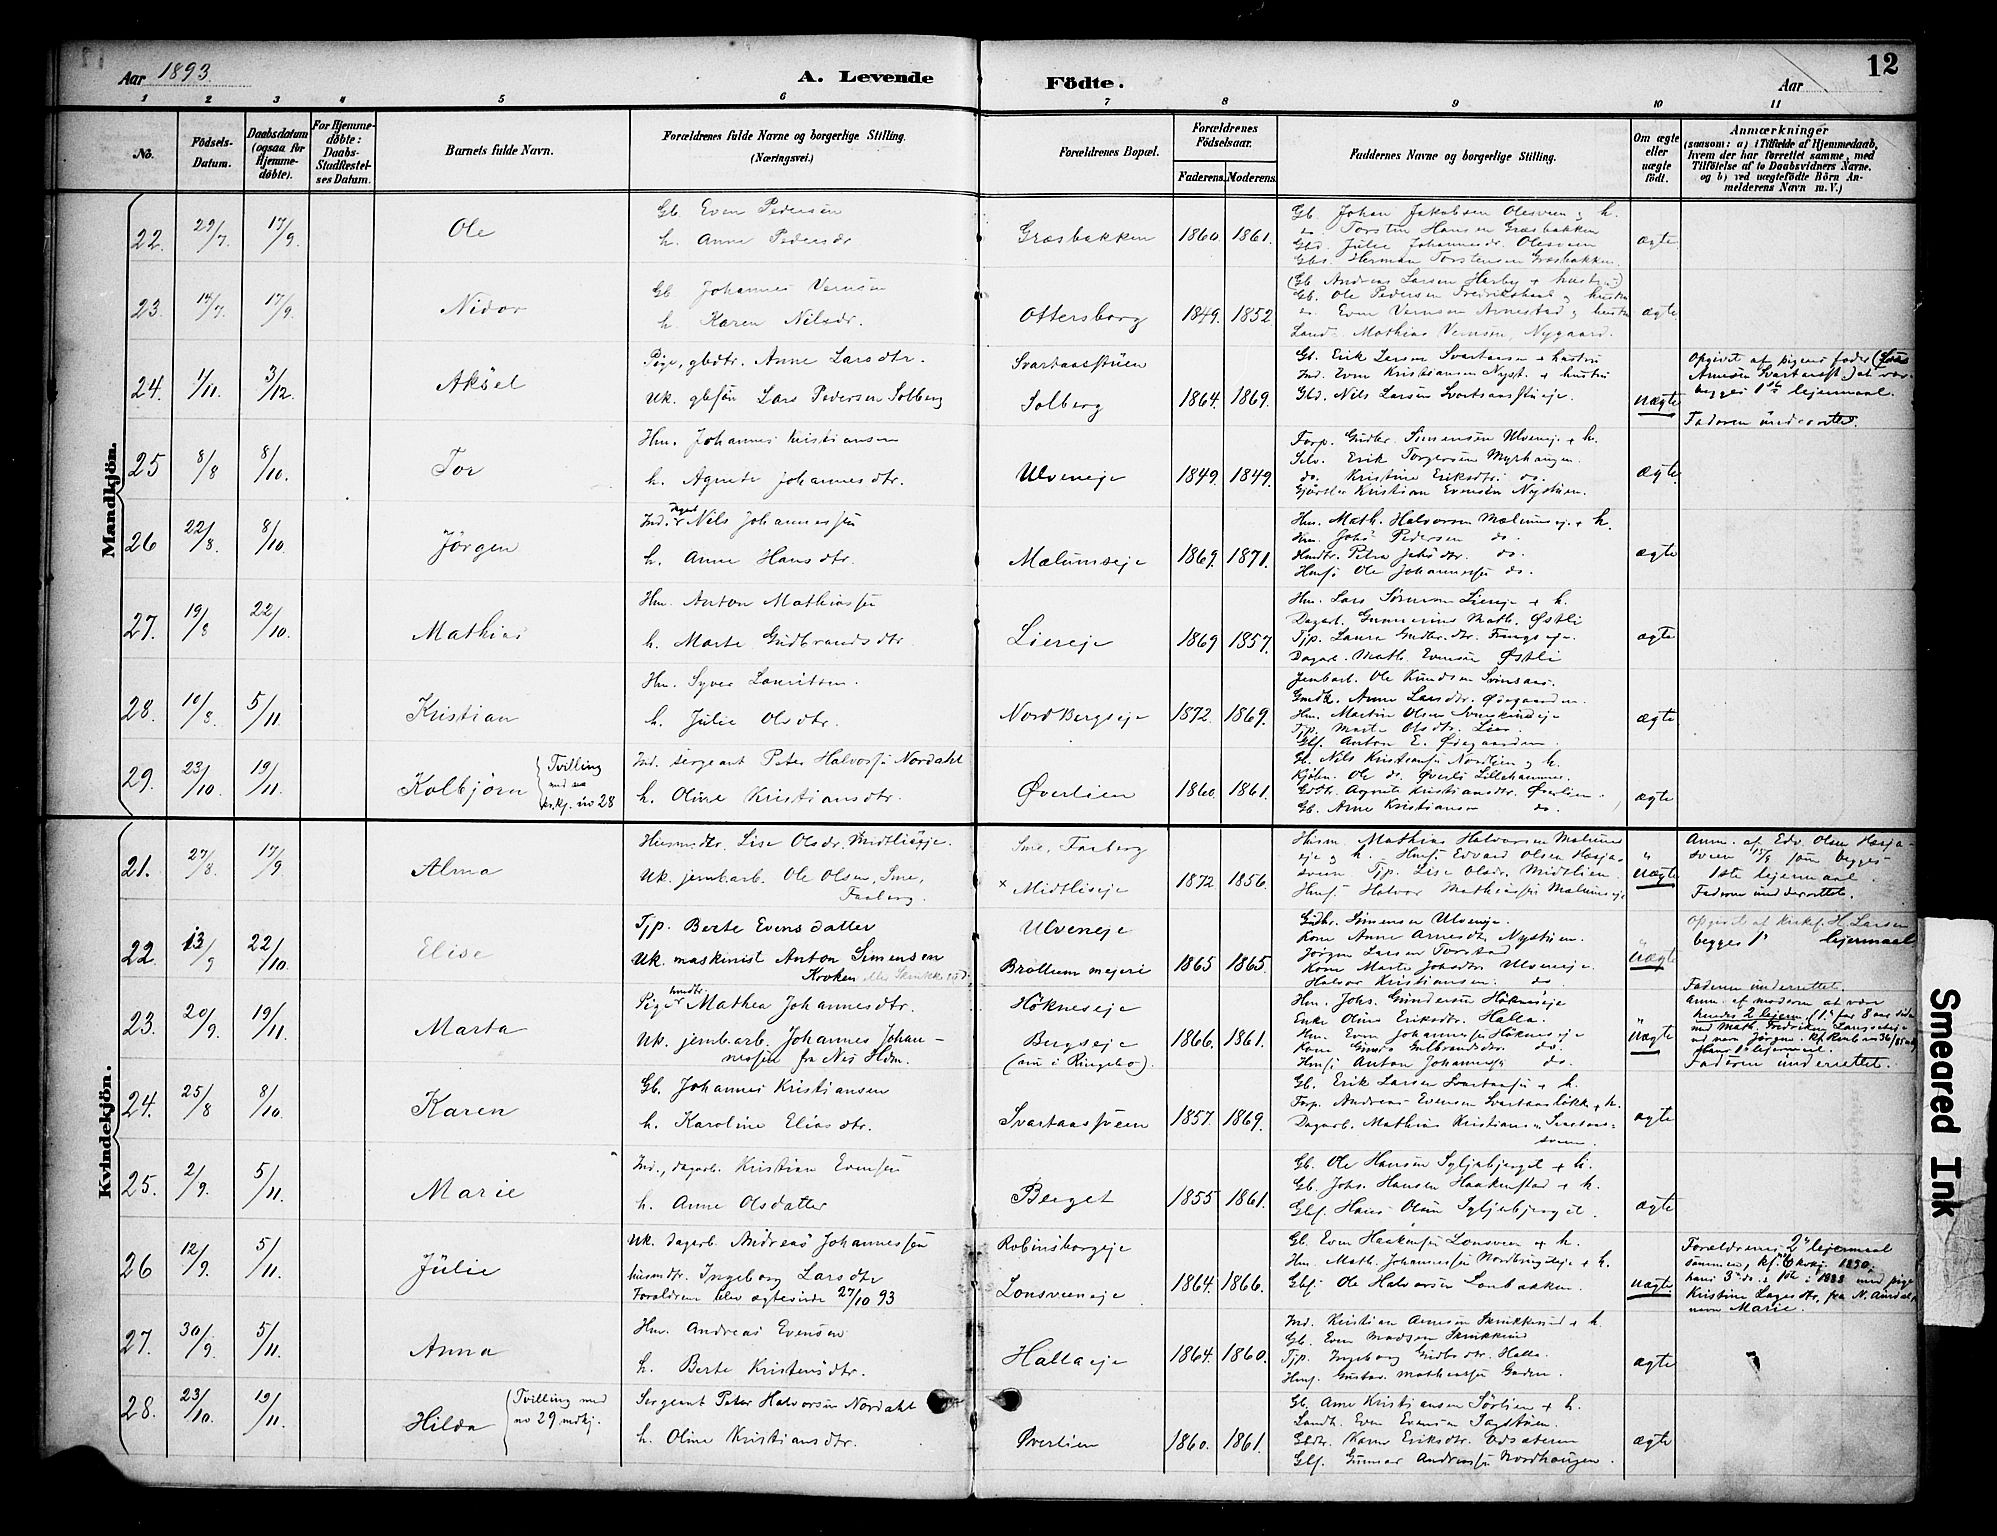 Aar 1893.
A. Levende Födte.
Aar
12
1 2 3 4 5 6 7 8 9 10 11
No.
Födsels-Datum.
Daabsdatum (ogsaa for Hjemme-døbte).
For Hjemme-døbte: Daabs-Stadfæstel-ses Datum.
Barnets fulde Navn.
Forældrenes fulde Navne og borgerlige Stilling.
(Næringsvei.)
Forældrenes Bopæl.
Forældrenes Födselsaar.
Faderens. Moderens.
Faddernes Navne og borgerlige Stilling.
Om ægte eller uægte født.
Anmærkninger
(saasom: a) i Tilfælde af Hjemmedaab, hvem der har forrettet samme, med Tilföielse af to Daabsvidners Navne, og b) ved uægtefödte Börn An-melderens Navn m. V.)
Mandkjön.
22. 29/7. 17/9. Ole
Gb. Even Pedersen
h. Anne Pedersdr
Græsbakken 1860. 1861.
Gb. Johan Jakobsen Olesveen & h.
Torsten Hansen Græsbakken
Gbd. Julie Johannesdr. Olesveen
Gbs. Herman Torstensen Græsbakken
ægte
23. 14/7. 17/9. Nidor
Gb. Johannes Vernsen
h. Karen Nilsdr.
Ottersborg 1849. 1852
(Gb. Andreas Larsen Harby + hustru)
Gb. Ole Pedersen Fredrikstad & hustru
Even Vernsen Arnestad & hustru
Land. Mathias Vernsen, Nygaard.
ægte
24. 1/11. 3/12. Aksel
Pige, gbdtr. Anne Larsdtr.
Uk. gbsön Lars Pedersen Solberg
Svartaasstuen
Solberg 1864. 1869.
Gb. Erik Larsen Svartaasen + hustru
Ind. Even Kristiansen Nyst. + hustru
Gbd. Nils Larsen Svartaasstueje.
uægte
Opgivet af pigens fader (Lars
Arnesen Svartaasst.) at var
begges 1ste lejermaal.
Faderen underrettet.
25 8/8 8/10. Tor
Hm. Johannes Kristiansen
h. Agnete Johannesdtr.
Ulveneje 1849. 1849.
Forp. Gudbr. Simensen Ulveneje + h.
Selv. Erik Torgersen Myrhaugen.
do. Kristine Eriksdtr. do.
Gjörtler Kristian Evensen Nystuen.
ægte.
26 22/8. 8/10. Jörgen
Ind. Nils Johannessen
h. Anne Hansdtr.
Mælumseje 1869. 1871.
Hm. Math. Halvorsen Mælumseje + h.
Hm. Johs Pedersen do.
Hmdtr. Petra Johsdtr. do.
Hmsö Ole Johannessen do.
ægte
27. 19/8 22/10. Mathias
Hm. Anton Mathiassen
h. Marte Gudbrandsdtr.
Liereje 1869 1857.
Hm. Lars Sörensen Liereje + h.
Dagarb. Gunnerius Math. Østli
Tjp. Laura Gudbr.dtr. Fangseje.
Dagarb. Math. Evensen Østli
ægte
28. 10/8. 5/11. Kristian
Hm. Syver Lauritsen.
h. Julie Olsdtr.
Nord Bergseje 1872. 1869.
Jernbarb. Ole Knudsen Svinsaas.
Gmdtr. Anne Larsdtr. Ødegaarden.
Hm. Martin Olsen
Tjp. Marte Olsdtr. Lier.
Gbs. Anton E. Ødegaarden.
ægte
29. 23/10. 19/11. Kolbjörn
Tvilling med kv.kj. nr 28
Ind. sergeant Peter Halvorsen Nordahl
h. Oline Kristiansdtr.
Øverlien 1860. 1861.
Gb. Nils Kristiansen Nordlien & h.
Kjöbm. Ole do. Øverli Lillehammer.
Gdtr. Agnete Kristiansdtr. Øverlien.
Gb. Arne Kristiansen do.
ægte
Kvindekjön.
21. 27/8. 17/9 Alma
Husmdtr. Lise Olsdr. Midtlieseje.
Uk. jernb.arb. Ole Olsen, Sme, Faaberg.
Sme, Faaberg
× Midtliseje 1872 1856.
Husm. Mathias Halvorsen Mælums
eje & h. Hmsö Edvard Olsen Hasja-
sveen Tjp. Lise Olsdr. Midtlien.
Hmsö Halvor Mathiassen Mælumseje
uægte
Anm. af Edv. Olsen Hasja-
sveen 15/9 som begges
1ste lejermaal.
Faderen underrettet.
22. 13/9 22/10. Elise
Tjp. Berte Evensdatter
Uk. maskinist Anton Simensen
Kroken
Ulveneje
Bröttum mejeri 1865 1865.
Gudbr. Simensen Ulveneje.
Kone Anne Arnesdtr Nystuen.
Jörgen Larsen Torstad
Kone Marte Johsdtr Ulveneje.
Halvor Kristiansen. do.
uægte
Opgivet af kirkes. H. Larsen
begges 1ste lejermaal
Faderen underrettet.
23. 20/9. 19/11. Marta
Pige Mathea Johannesdtr.
Uk. jernb.arb. Johannes Johan-
nessen fra Næs Hdm.
Hökneseje
Bergseje 1866. 1861.
(nu i Ringebo).
Hm. Johs. Gundersen Hökneseje
Enke Oline Eriksdtr. Halla.
Hm. Even Johannessen Hökneseje
Kone Gulbrandsdtr. do.
Hmsö Anton Johannessen do.
uægte
Anm. af moderen at var
hendes 2 lejerm. (1ste for 8 aar siden
Faderen underrettet.
24. 25/8 8/10. Karen
Gb. Johannes Kristiansen
h. Karoline Eliasdtr.
Svartaassveen 1857. 1869.
Gb. Erik Larsen Svartaasen + h.
Forp. Andreas Evensen Svartaaslökk + h.
Dagarb. Mathias Kristians. Svartaas-
sveen.
ægte
25. 2/9. 5/11. Marie
Ind., dagarb. Kristian Evensen
h. Anne Olsdatter
Berget 1855 1861.
Gb. Ole Hansen Syljebjerget + h.
Gb. Johs. Hansen Haakenstad + h.
Gbs. Hans Olsen Syljebjerget.
ægte
26 12/9. 5/11. Julie
Uk. dagarb. Andreas Johannessen
husmdtr. Ingeborg Larsdtr
Forældrene blev ægteviede 27/10 93
Robinsborgeje
Lonsveeneje 1864. 1866.
Gb. Even Haakensen Lonsveen + h.
Hm. Math. Johannessen + h.
Gbs. Ole Halvorsen Lonbakken.
uægte.
Forældrenes 2det lejermaal
sammen, kf. 6 kvkj. 1890,
hans 3die do. i 1888 med pige
Kristine Larsdtr. fra N. Aurdal,
navn Marie.
27. 30/9. 5/11. Anna
Hm. Andreas Evensen
h. Berte Kristensdtr.
Hallaeje 1864. 1860.
Ind. Kristian Arnesen Skrukkerud + h.
Gb. Even Madsen Skrukkrud
Tjp. Ingeborg Gudbr.dtr. Halla.
Hmsö. Gustav Mathiassen Gaden.
ægte
28. 23/10. 19/11. Hilda
Tvilling med nr 29 mdkj.
Sergeant Peter Halvorsen Nordahl
h. Oline Kristiansdtr.
Øverlien 1860. 1861.
Gb. Arne Kristiansen Sörlien + h.
Landh. Even Evensen Sagstuen.
Gbdtr. Karen Eriksdtr. Odsæteren
Gbs. Gunnar Andreassen Nordhaugen.
ægte
Smeared Ink